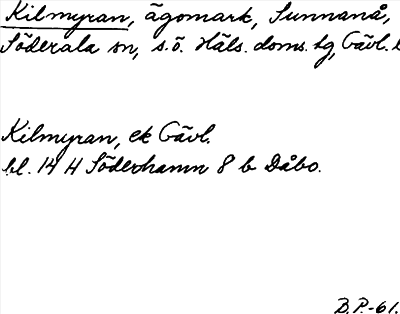 Kilmyran, ägomark, Sunnanå,
Söderala sn, s.ö. Häls. doms. tg, Gävl. l
Kilmyran, ek Gävl.
bl. 14 H Söderhamn 8 b Dåbo.
B.P.-61.